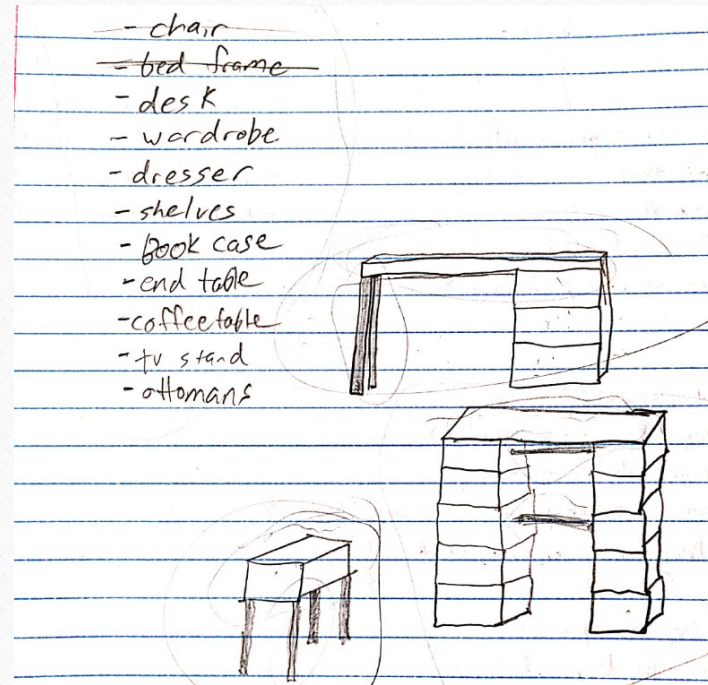 - chair
- bed frame
- desk
- wardrobe
- dresser
- shelves
- book case
- end table
- coffee table
- tv stand
- ottomans